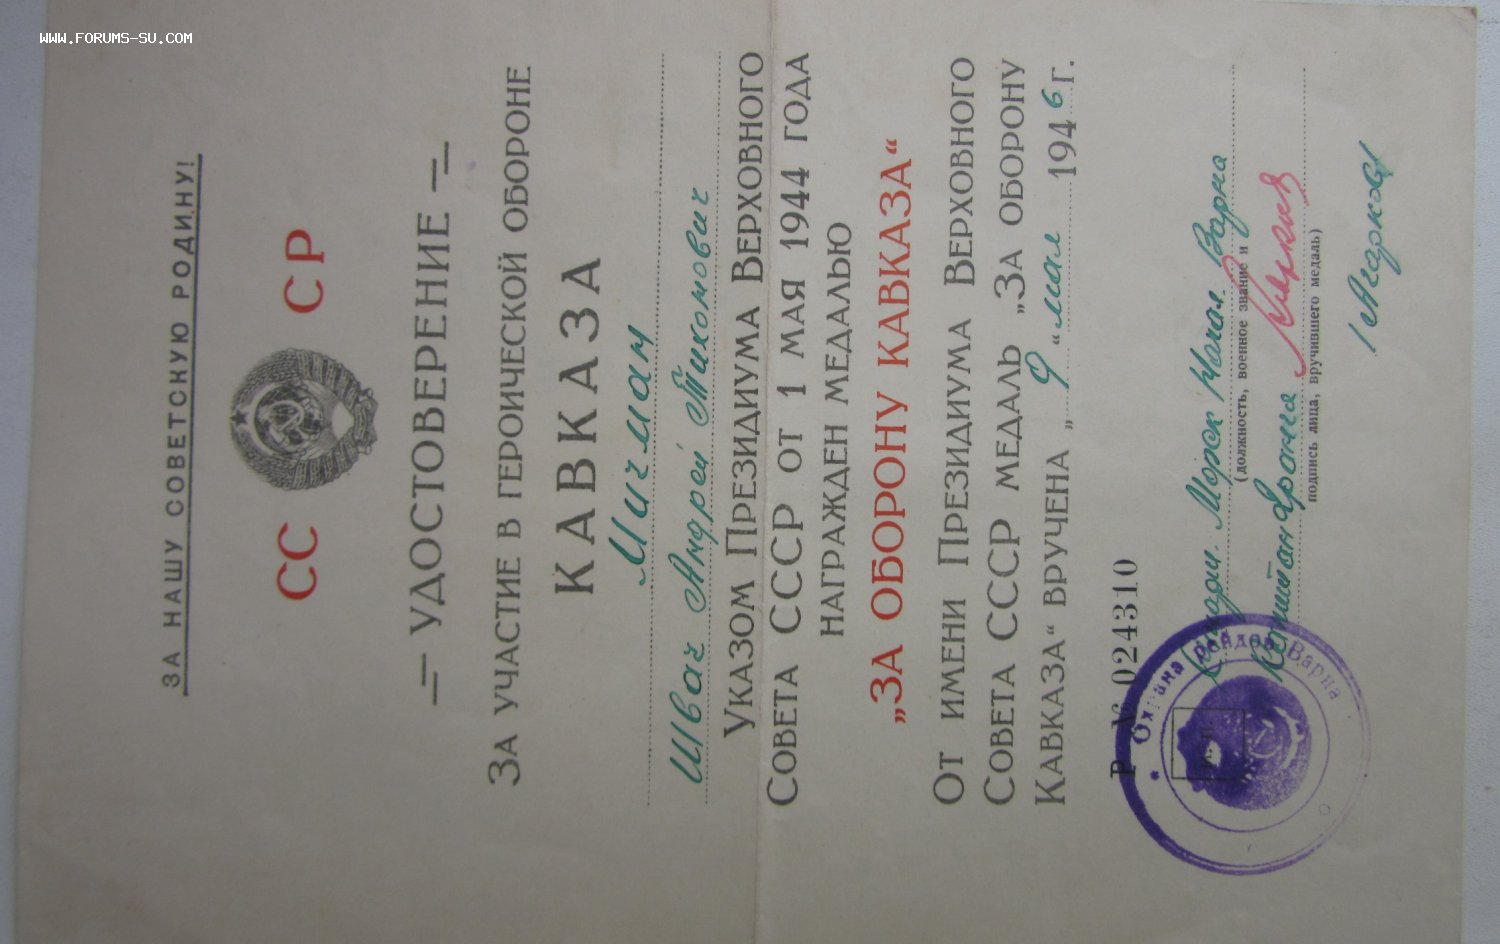 WWW.FORUMS-SU.COM
ЗА НАШУ СОВЕТСКУЮ РОДИНУ!
СС СР
УДОСТОВЕРЕНИЕ
ЗА УЧАСТИЕ В ГЕРОИЧЕСКОЙ ОБОРОНЕ
КАВКАЗА
Мичман
Швач Андрей Тихонович
УКАЗОМ ПРЕЗИДИУМА ВЕРХОВНОГО
СОВЕТА СССР ОТ 1 МАЯ 1944 ГОДА
НАГРАЖДЕН МЕДАЛЬЮ
„ЗА ОБОРОНУ КАВКАЗА“
ОТ ИМЕНИ ПРЕЗИДИУМА ВЕРХОВНОГО
СОВЕТА СССР МЕДАЛЬ „ЗА ОБОРОНУ
КАВКАЗА“ ВРУЧЕНА „9“ мая 1946 г.
Р № 024310
Морск Варна
(должность, военное звание и
Капитан
подпись лица, вручившего медаль)
/Марков/
Охрана рейдов Варна